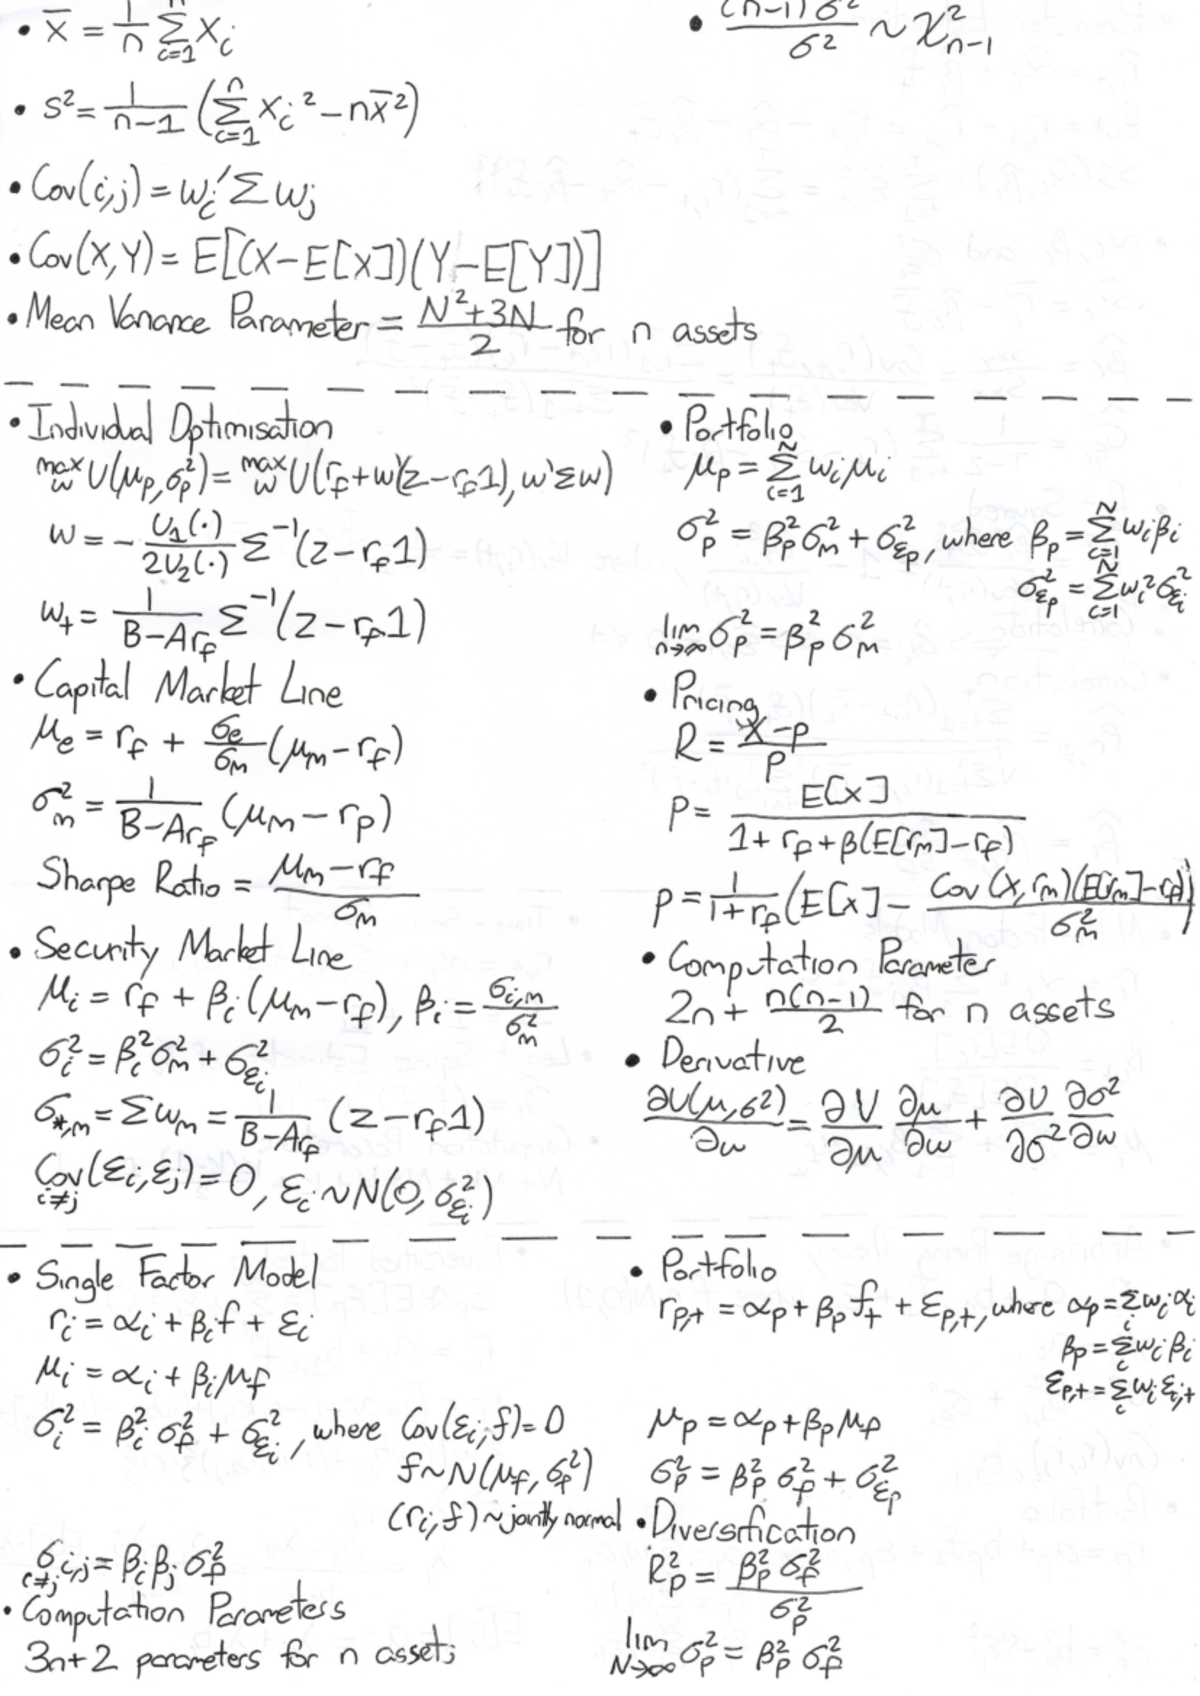 • x̄ = 1/n Σ_{i=1}^{n} x_i
• S² = 1/(n-1) (Σ_{i=1}^{n} x_i² - nx̄²)
• Cov(i,j) = w_i' Σ w_j
• Cov(X,Y) = E[(X-E[X])(Y-E[Y])]
• Mean Variance Parameter = (N²+3N)/2 for n assets
• (n-1)σ²/σ² ~ χ²_{n-1}
• Individual Optimisation
max_w U(μ_p, σ_p²) = max_w U(r_f + w'(z-r_f1), w'Σw)
w = - U_1(·)/2U_2(·) Σ⁻¹(z-r_f1)
w_t = 1/(B-Ar_f) Σ⁻¹(z-r_f1)
• Capital Market Line
μ_e = r_f + σ_e/σ_m (μ_m-r_f)
σ_m² = 1/(B-Ar_f) (μ_m-r_p)
Sharpe Ratio = (μ_m-r_f)/σ_m
• Security Market Line
μ_i = r_f + β_i(μ_m-r_f), β_i = σ_{i,m}/σ_m²
σ_i² = β_i²σ_m² + σ_{ε_i}²
σ_{*,m} = Σw_m = 1/(B-Ar_f) (z-r_f1)
Cov_{i≠j}(ε_i,ε_j) = 0, ε_i ~ N(0, σ_{ε_i}²)
• Portfolio
μ_p = Σ_{i=1}^{N} w_i μ_i
σ_p² = β_p²σ_m² + σ_{ε_p}², where β_p = Σ_{i=1}^{N} w_i β_i
σ_{ε_p}² = Σ_{i=1}^{N} w_i² σ_{ε_i}²
lim_{n→∞} σ_p² = β_p² σ_m²
• Pricing
R = (X-P)/P
P = E[X]/(1+r_f+β(E[r_m]-r_f))
P = 1/(1+r_f) (E[X] - Cov(X,r_m)(E[r_m]-r_f)/σ_m²)
• Computation Parameter
2n + n(n-1)/2 for n assets
• Derivative
∂U(μ,σ²)/∂w = ∂U/∂μ ∂μ/∂w + ∂U/∂σ² ∂σ²/∂w
• Single Factor Model
r_i = α_i + β_i f + ε_i
μ_i = α_i + β_i μ_f
σ_i² = β_i² σ_f² + σ_{ε_i}², where Cov(ε_i,f)=0
f~N(μ_f, σ_f²)
(r_i,f)~jointly normal
σ_{i,j} = β_i β_j σ_f² (i≠j)
• Computation Parameters
3n+2 parameters for n assets
• Portfolio
r_{p,t} = α_p + β_p f_t + ε_{p,t}, where α_p = Σ_i w_i α_i
β_p = Σ_i w_i β_i
ε_{p,t} = Σ_i w_i ε_{i,t}
μ_p = α_p + β_p μ_f
σ_p² = β_p² σ_f² + σ_{ε_p}²
• Diversification
R_p² = β_p² σ_f²/σ_p²
lim_{N→∞} σ_p² = β_p² σ_f²